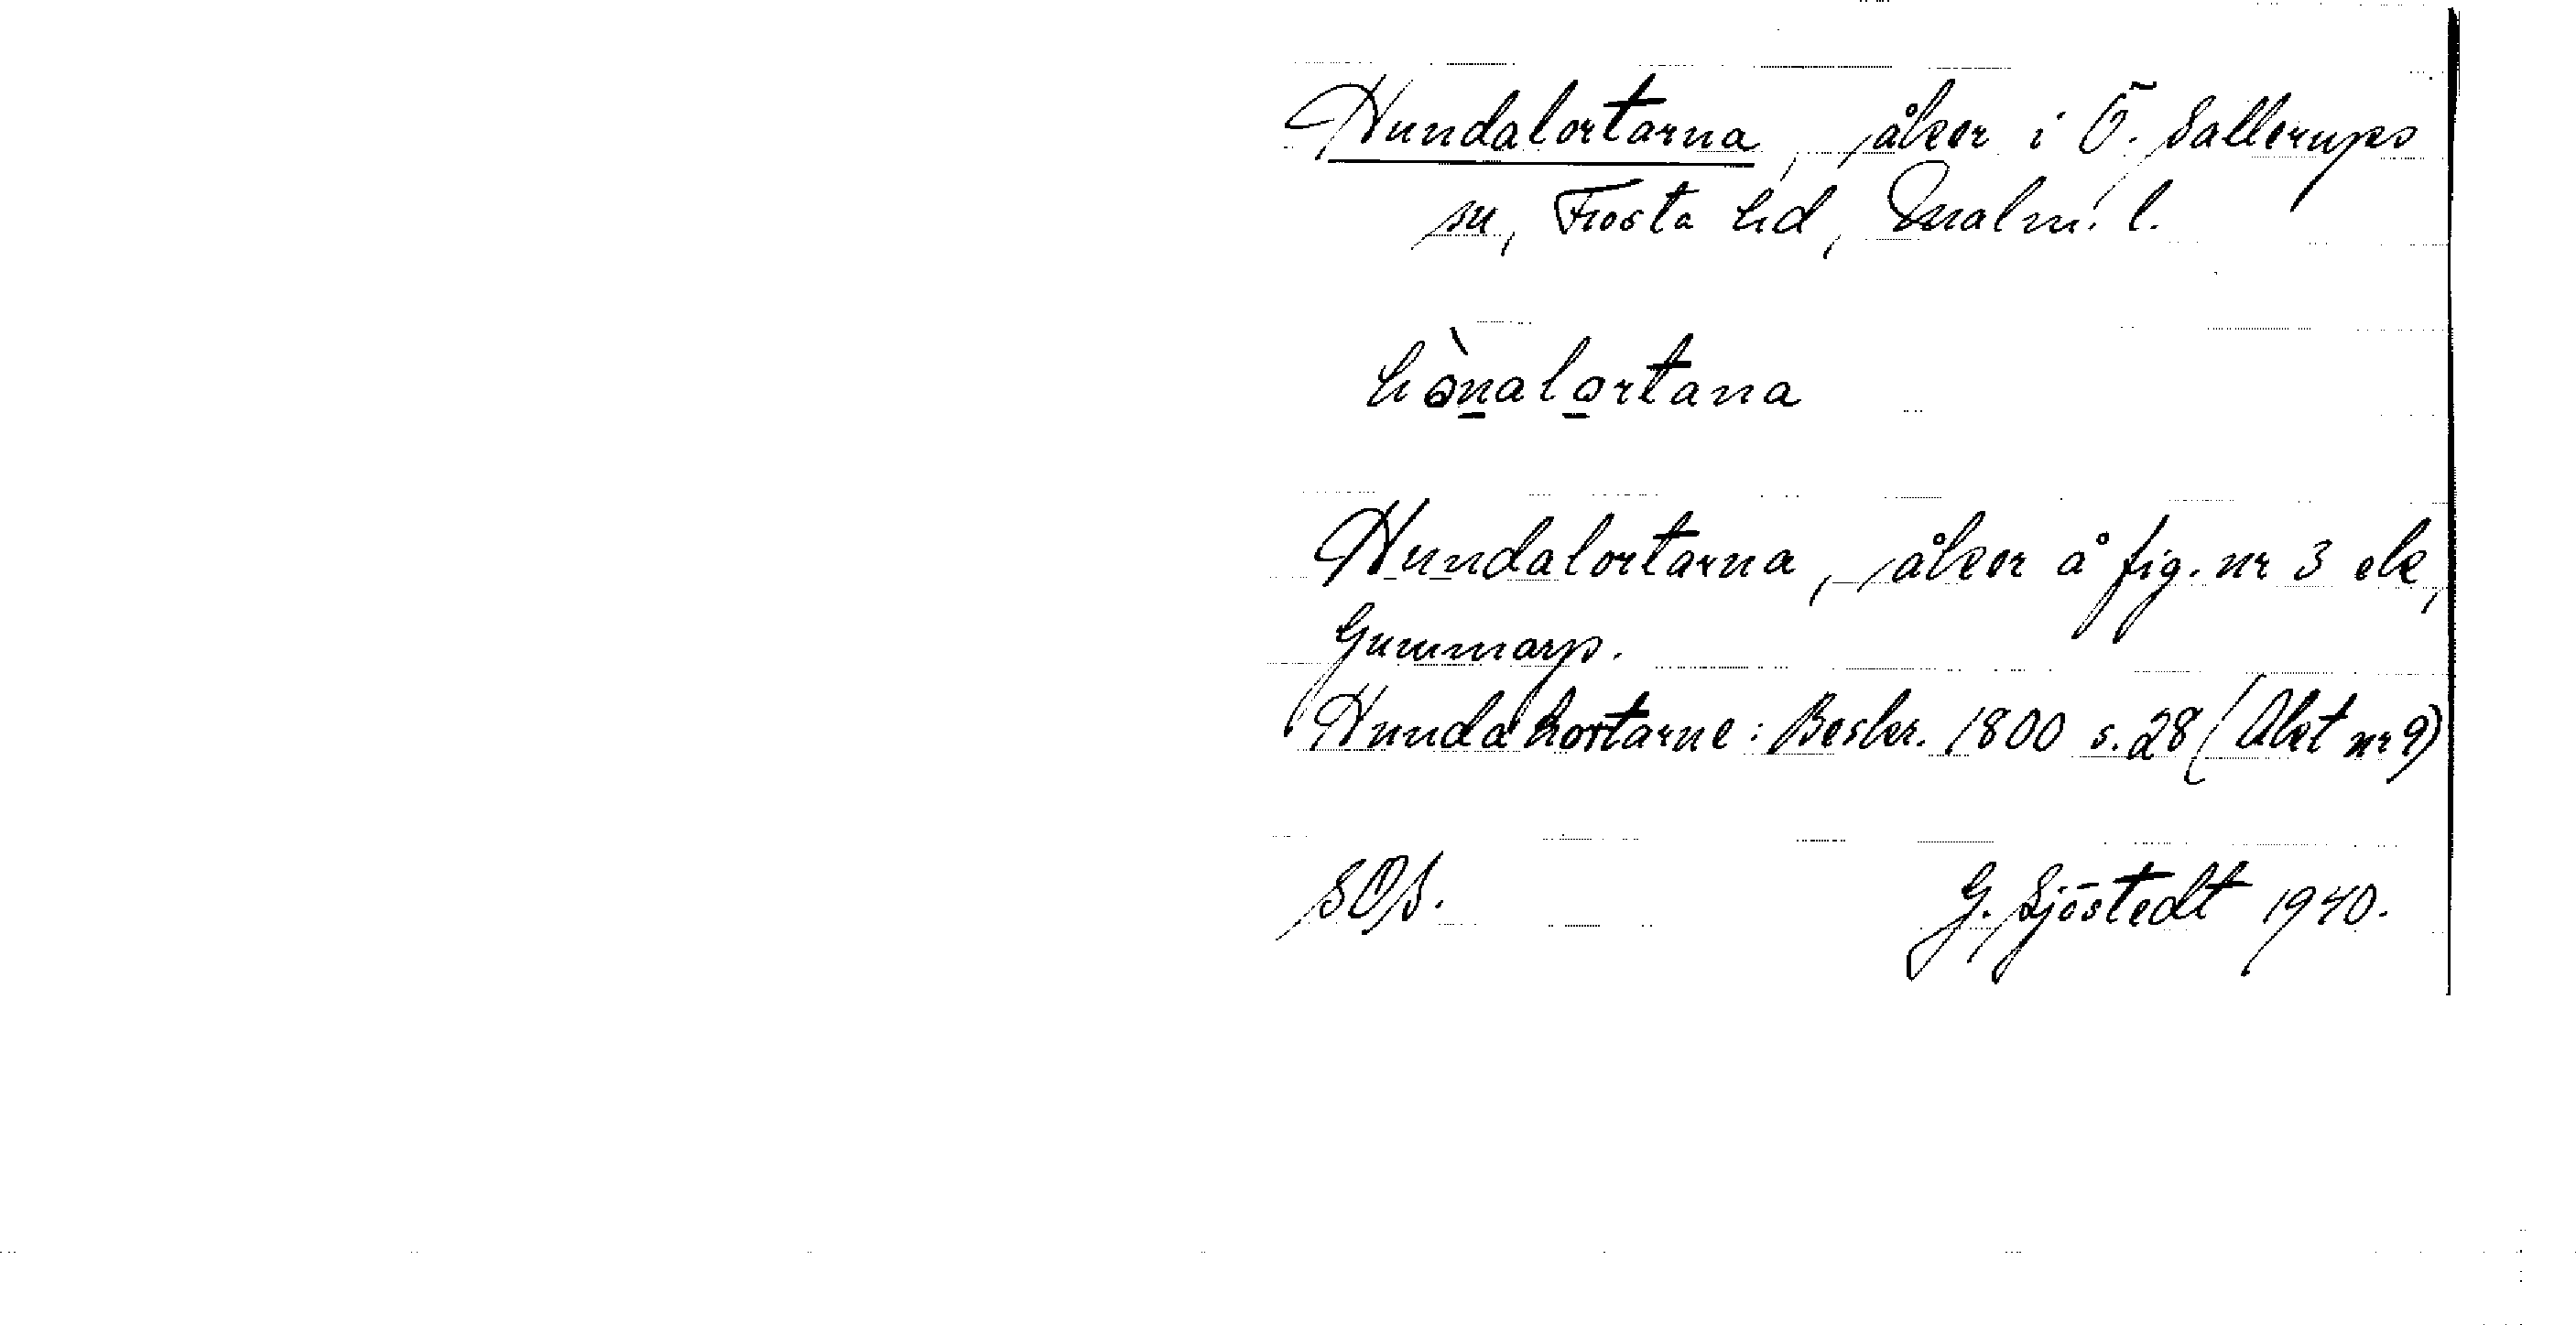 Hundalortarna, åker i Ö. Sallerups
sn, Frosta hd, Malm. l.
hònalortana
Hundalortarna, åker å fig. nr 3 ek,
Gummarp.
Hunda hortarne: Beskr. 1800 s. 28 (Akt nr 9)
SOS.
G. Sjöstedt 1940.